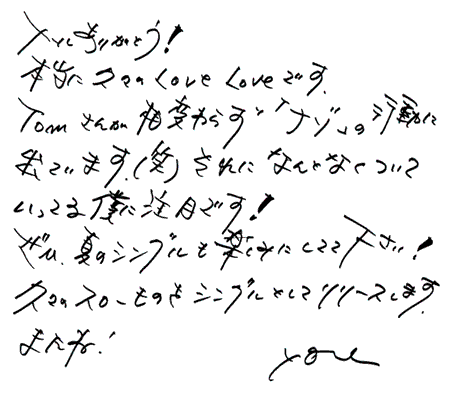 メールありがとう!
本当に久々のLove Loveです。
Tomさんが相変わらず「ナゾ」の行動に
出ています。(笑)それになんとなくついて
いってる僕に注目です!
ぜひ、夏のシングルも楽しみにしてて下さい!
久々のスローものをシングルとしてリリースします。
まんね!
you